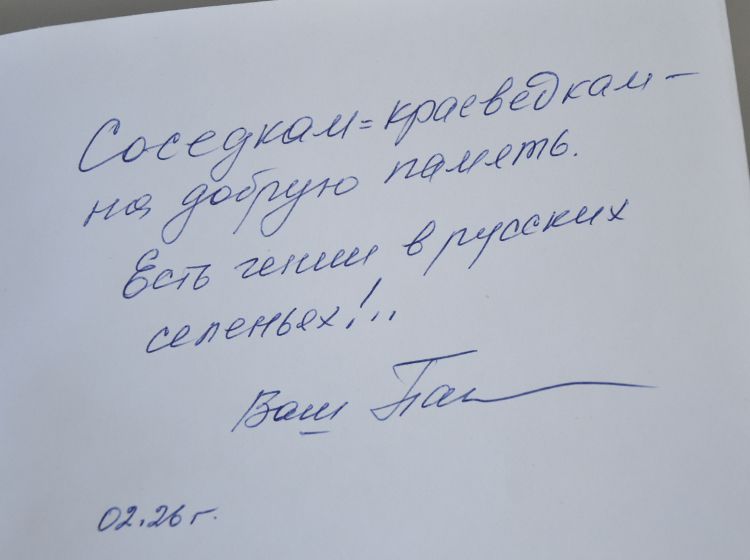 Соседкам=краеведкам –
на добрую память.
Есть гении в русских
селеньях!..
Ваш
02.26 г.